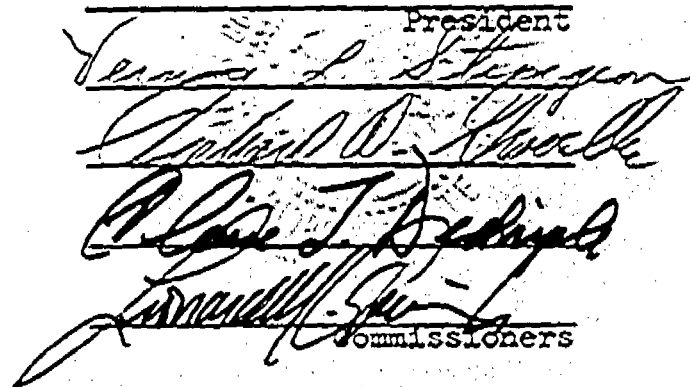 President
Vernon L. Sturgeon
Richard D. Gravelle
Claire T. Dedrick
Commissioners